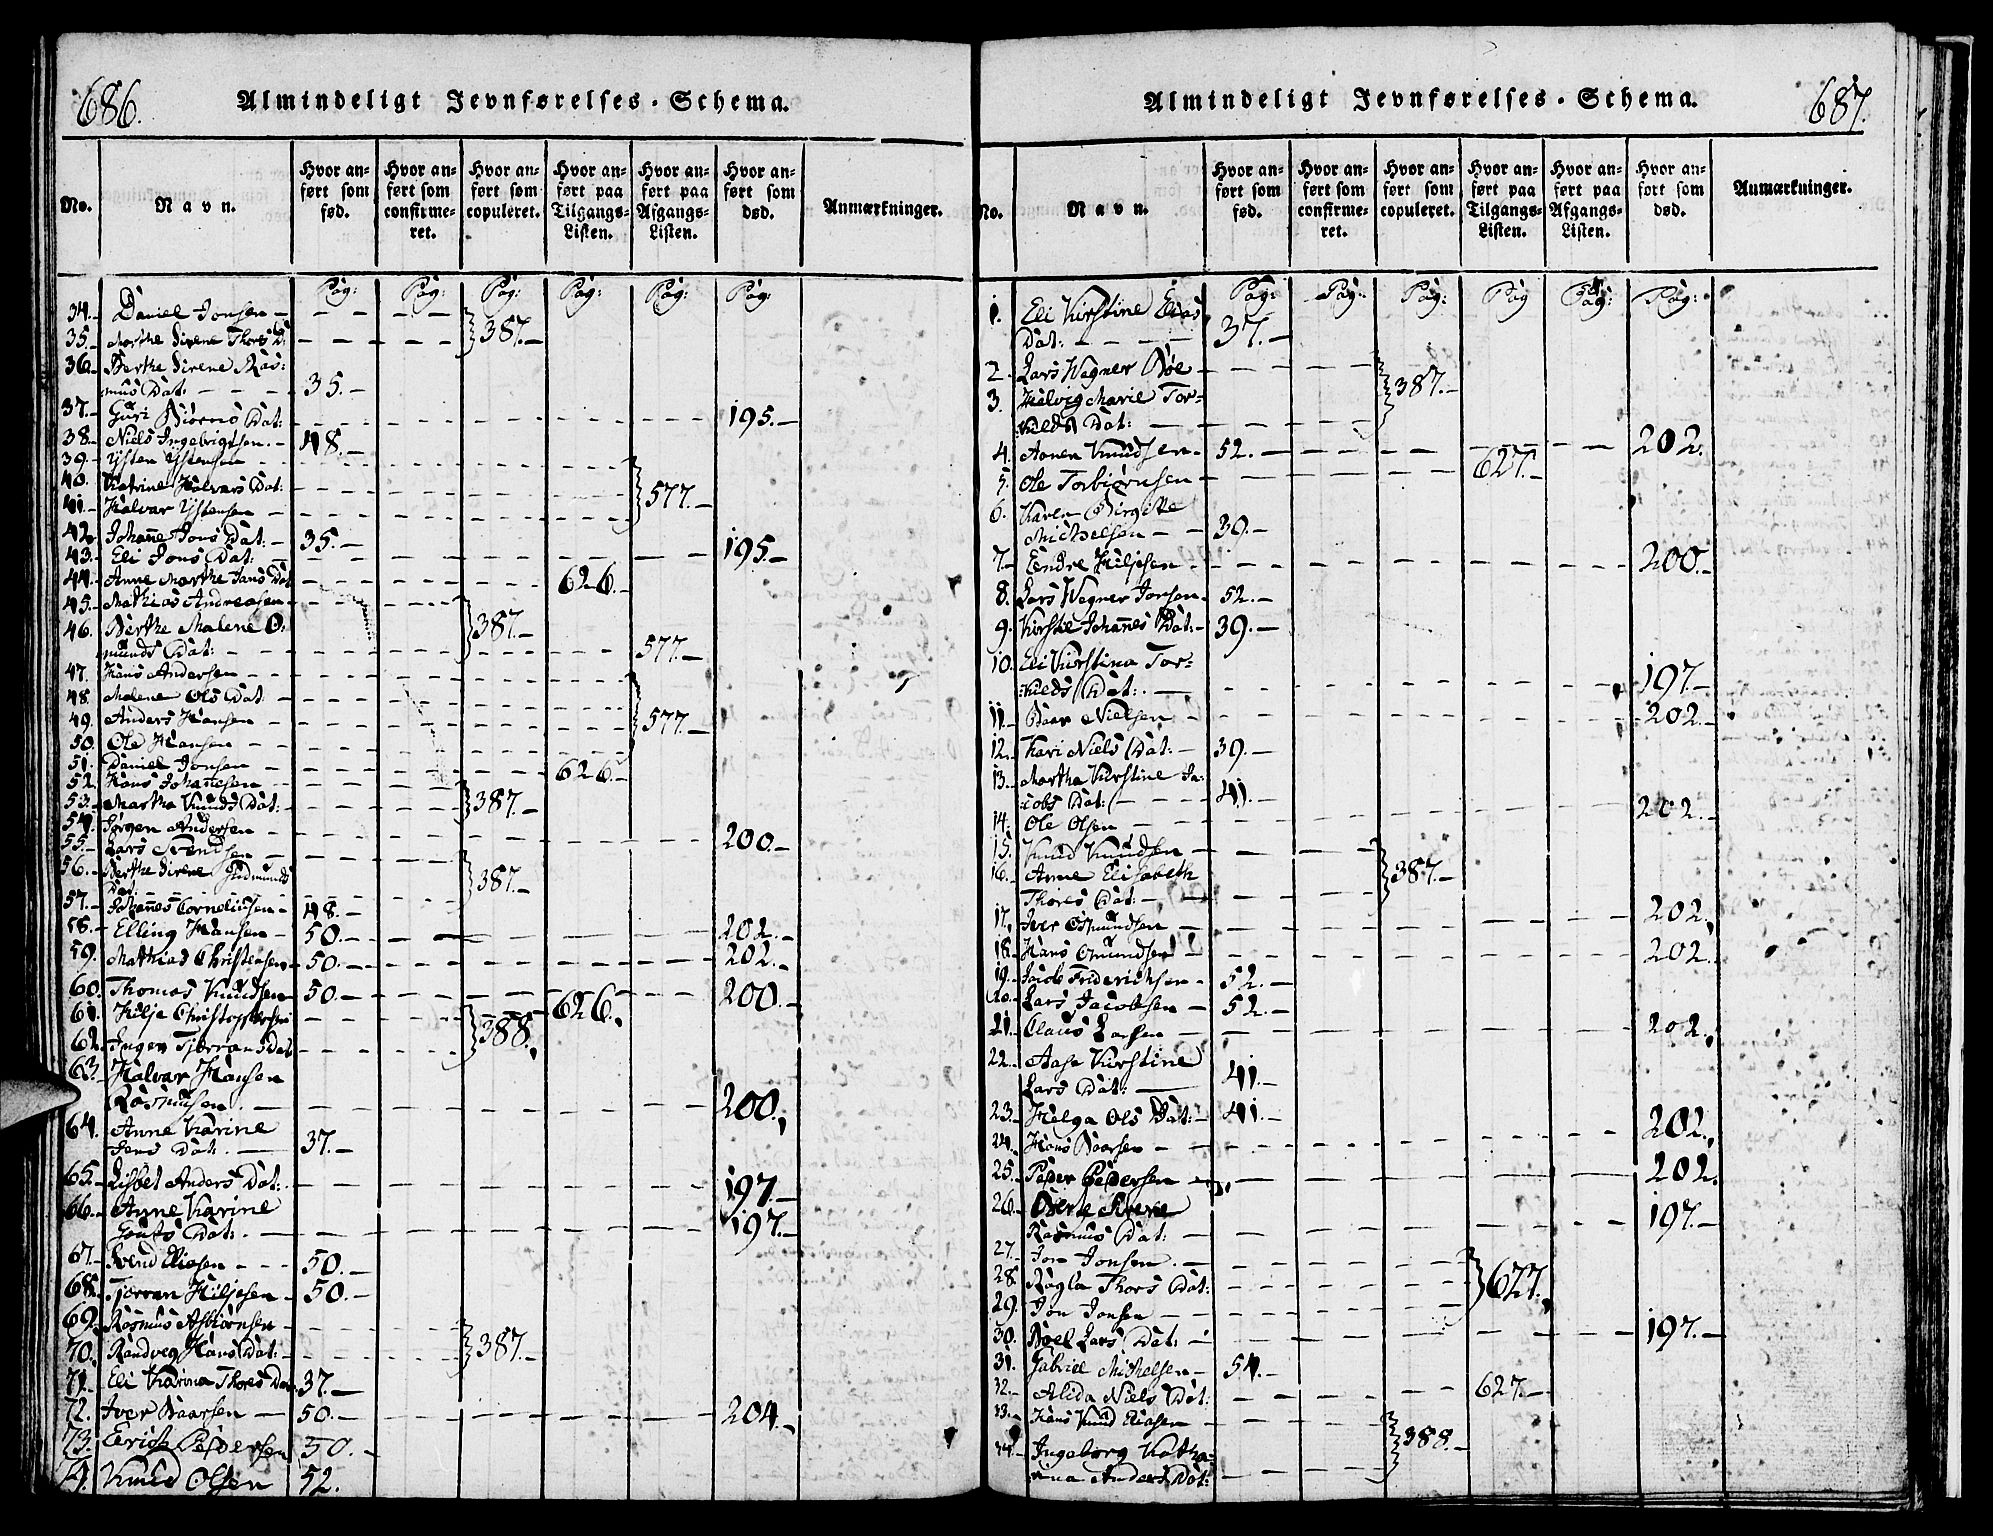 686.
Almindeligt Jevnførelses-Schema.
No.
Navn.
Hvor an-
ført som
fød.
Hvor an-
ført som
confirme-
ret.
Hvor an-
ført som
copuleret.
Hvor an-
ført paa
Tilgangs-
Listen.
Hvor an-
ført paa
Afgangs-
Listen.
Hvor an-
ført som
død.
Anmærkninger.
Pag: Pag: Pag: Pag: Pag: Pag:
34. Daniel Jonsen
35. Marthe Sirene Thores D: 387.
36. Berthe Sirene Ras:
mus Dat: 35.
37. Guri Biørns Dat: 195.
38. Niels Ingebrigtsen 48.
39. Ysten Ystensen
40. Katrine Halvars Dat: 577.
41. Halvar Ystensen
42. Johañe Jons Dat: 35.
43. Eli Jons Dat: 195.
44. Anne Marthe Jans Dat 626.
45. Mathias Andreasen 387.
46. Berthe Malene O:
munds Dat: 577.
47. Hans Andersen
48. Malene Ols Dat
49. Anders Hansen 577.
50. Ole Hansen
51. Daniel Jonsen 626.
52. Hans Johañesen
53. Martha Knuds Dat: 387.
54. Jørgen Andersen 200.
55. Lars Svendsen
56. Berthe Sirene Gudmunds
Dat: 387.
57. Johañes Corneliusen 48.
58. Elling Hansen 50. 202.
59. Mathias Christensen 50. 202.
60. Thomas Knudsen 50. 200.
61. Kilje Christophersen 626.
62. Inger Tjerrans Dat 388.
63. Halvar Hansen
Rasmusen 200.
64. Anne Karine
Jens Dat. 37.
65. Lisbet Anders Dat: 197.
66. Anne Karine
Dat: 197.
67. Svend Eliasen 50.
68. Tjerran Kiljesen 50.
69. Rasmus Asbiørnsen
70. Randveg Hans Dat: 387.
71. Eli Karina Thores Dat 37.
72. Iver Baarsen 50. 204.
73. Erich Pedersen 50.
74. Knud Olsen 52.
Almindeligt Jevnførelses-Schema.
687.
No.
Navn.
Hvor an-
ført som
fød.
Hvor an-
ført som
confirme-
ret.
Hvor an-
ført som
copuleret.
Hvor an-
ført paa
Tilgangs-
Listen.
Hvor an-
ført paa
Afgangs-
Listen.
Hvor an-
ført som
død.
Anmærkninger.
Pag: Pag: Pag: Pag Pag: Pag:
1. Eli Kirstine Elias
Dat: 37.
2. Lars Wegner Bøe
3. Helveg Marie Tor-
kilds Dat: 387.
4. Aanen Knudsen 52. 202.
5. Ole Torbiørnsen 627.
6. Karen Birgitte
Michelsen 39.
7. Endre Kiljesen 200.
8. Lars Wegner Jonsen 52.
9. Kirstie Johañes Dat: 39.
10. Eli Kirstina Tor-
kilds Dat: 197.
11. Baar Nielsen 202.
12. Kari Niels Dat: 39.
13. Martha Kirstine Ja:
cobs Dat: 41.
14. Ole Olsen 202.
15. Knud Knudsen
16. Anne Elisabeth
Thores Dat: 387.
17. Iver Osmundsen 202.
18. Hans Omundsen 202.
19. Jacob Friderichsen 52.
20. Lars Jacobsen 52.
21. Claus Larsen 202.
22. Aase Kirstine
Lars Dat: 41.
23. Helga Ols Dat: 41.
24. Hans Baarsen 202.
25. Peder Pedersen 202.
26. Berte Sirene
Rasmus Dat: 197.
27. Jon Jonsen
28. Ragla Thors Dat: 627.
29. Jon Jonsen
30. Boel Lars Dat: 197.
31. Gabriel Michelsen 54.
32. Alida Niels Dat: 627.
33. Hans Knud Eliasen
34. Ingeborg Katha-
rina Anders Dat: 388.